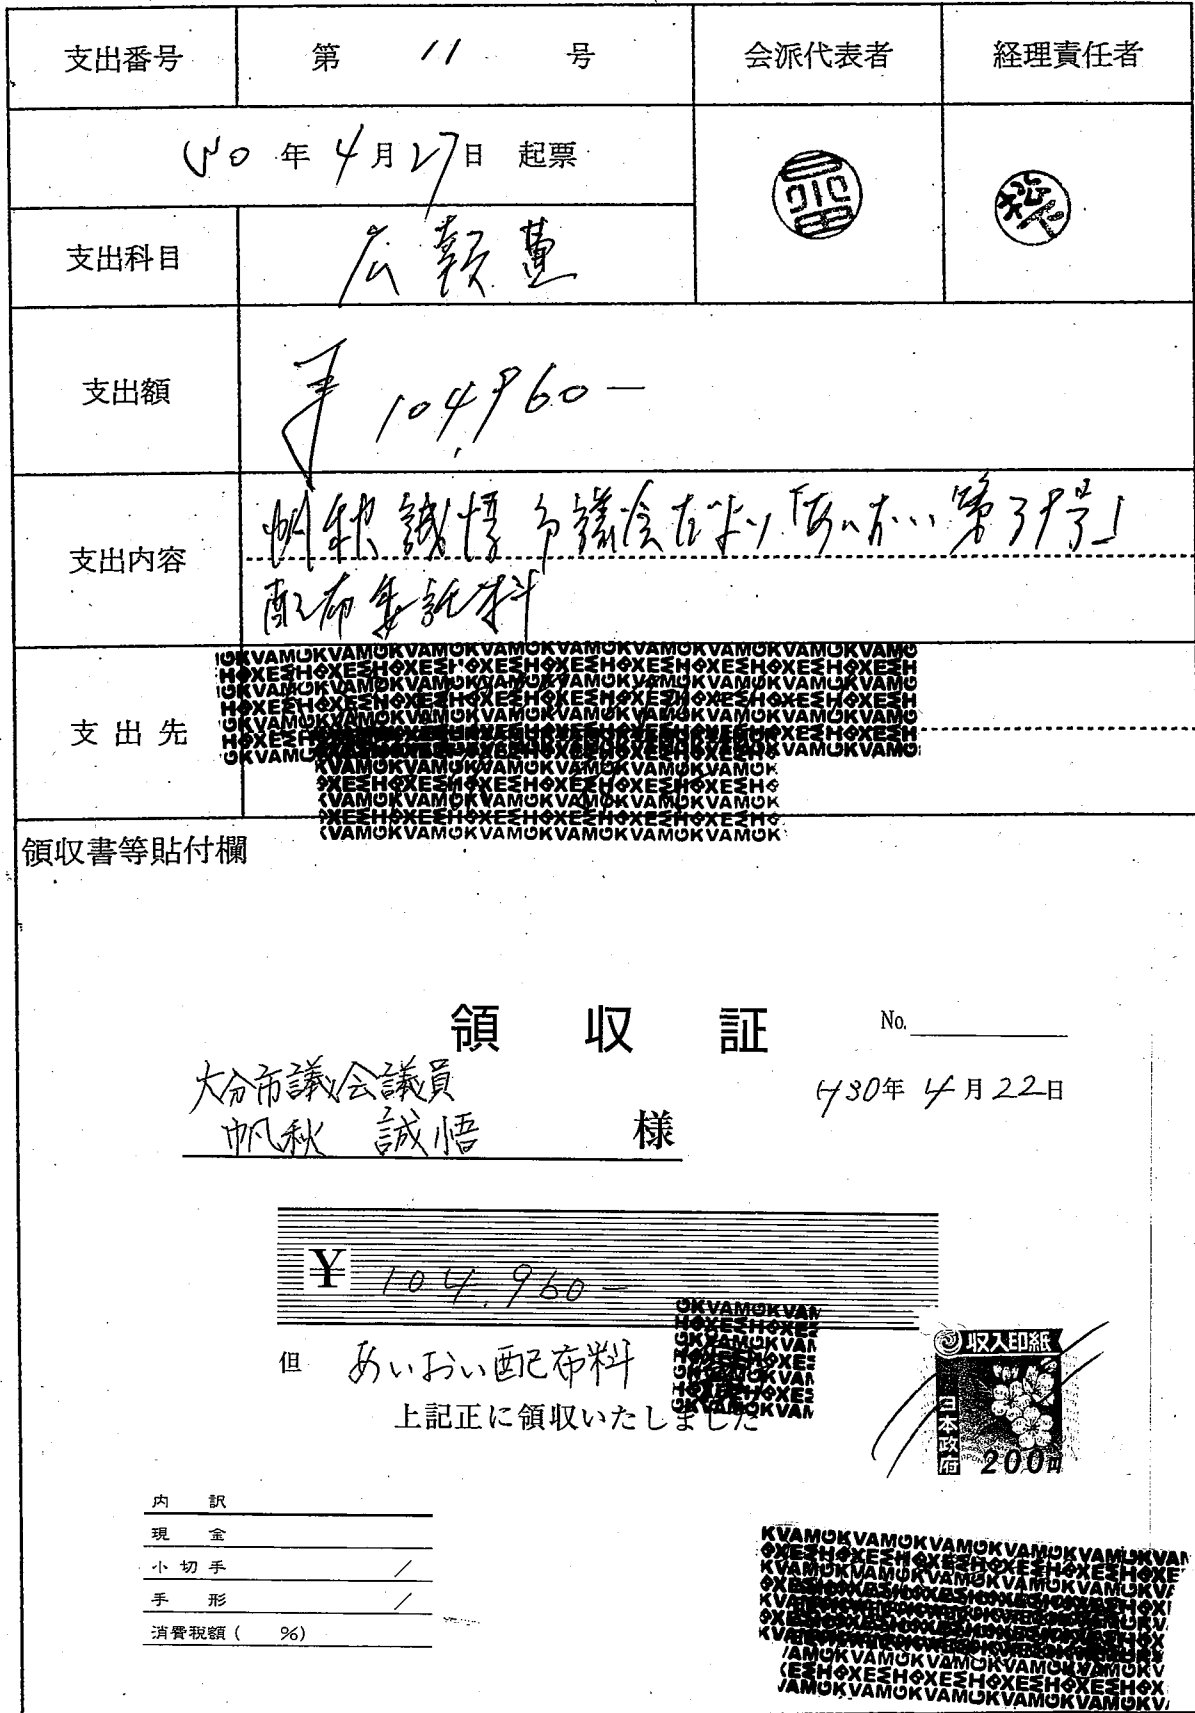 支出番号 第 11 号 会派代表者 経理責任者
30 年 4 月 27 日 起票
支出科目 広報費
支出額 ¥ 104,960-
支出内容 帆秋誠悟市議会だより「あいおい第39号」
配布委託料
支出先
領収書等貼付欄
領収証 No.
大分市議会議員
帆秋 誠悟 様
H30年 4月22日
¥ 104,960-
但 あいおい配布料
上記正に領収いたしました
収入印紙
日本政府
200円
内 訳
現 金
小切手 /
手 形 /
消費税額 ( %)